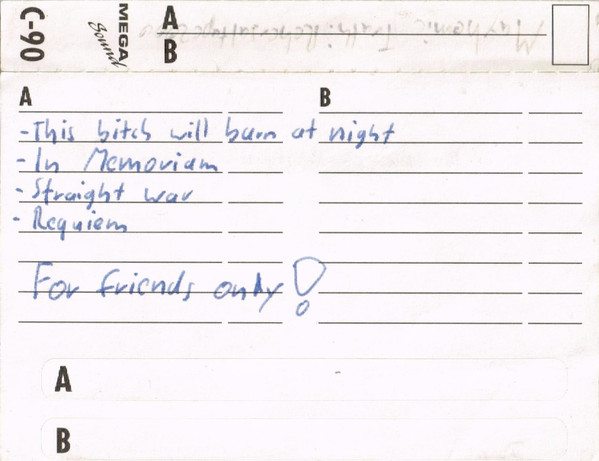 C-90
MEGA
Sound
A
B
A B
- This bitch will burn at night
- In Memoriam
- Straight war
- Requiem
For friends only!
A
B